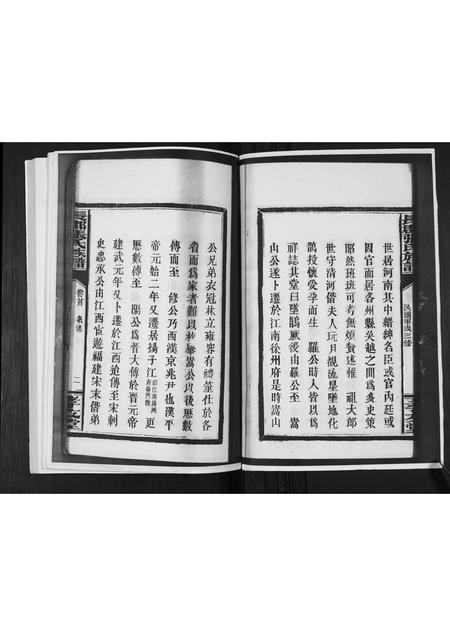 世居河南其中縉紳名臣或官內廷或
因官而居各州縣吳越之間為多史策
昭然班班可考無煩贅述惟 祖大郎
世守清河偕夫人玩月覩流星墜地化
鵲投懷受孕而生 羅公時人皆以為
祥誌其堂曰墜鵲厥後由羅公至 嵩
山公遂卜遷於江南徐州府是時嵩山
公兄弟衣冠林立雍容有禮筮仕於各
省而為家者難以枚舉嵩公以後歷數
傳而至 修公乃西漢京兆尹也漢平
帝元始二年又遷居揚子江 更
歷數傳至 闓公為晉大傅於晉元帝
建武元年又卜遷於江西迨傳至宋刺
史忠承公由江西宦遊福建宋末偕弟
卷首
民國甲戌三修